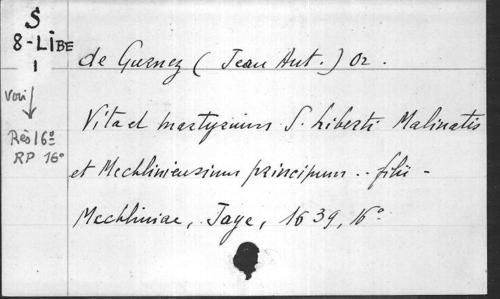 S
8-LiBE
1
de Gurnez (Jean Ant.) Or.
voir
Vita et martyrium S. Liberti Malinatis
Rés 16º
RP 16º
et Mechliniensium principum .. filii -
Mechliniae, Jaye, 1639, 16º